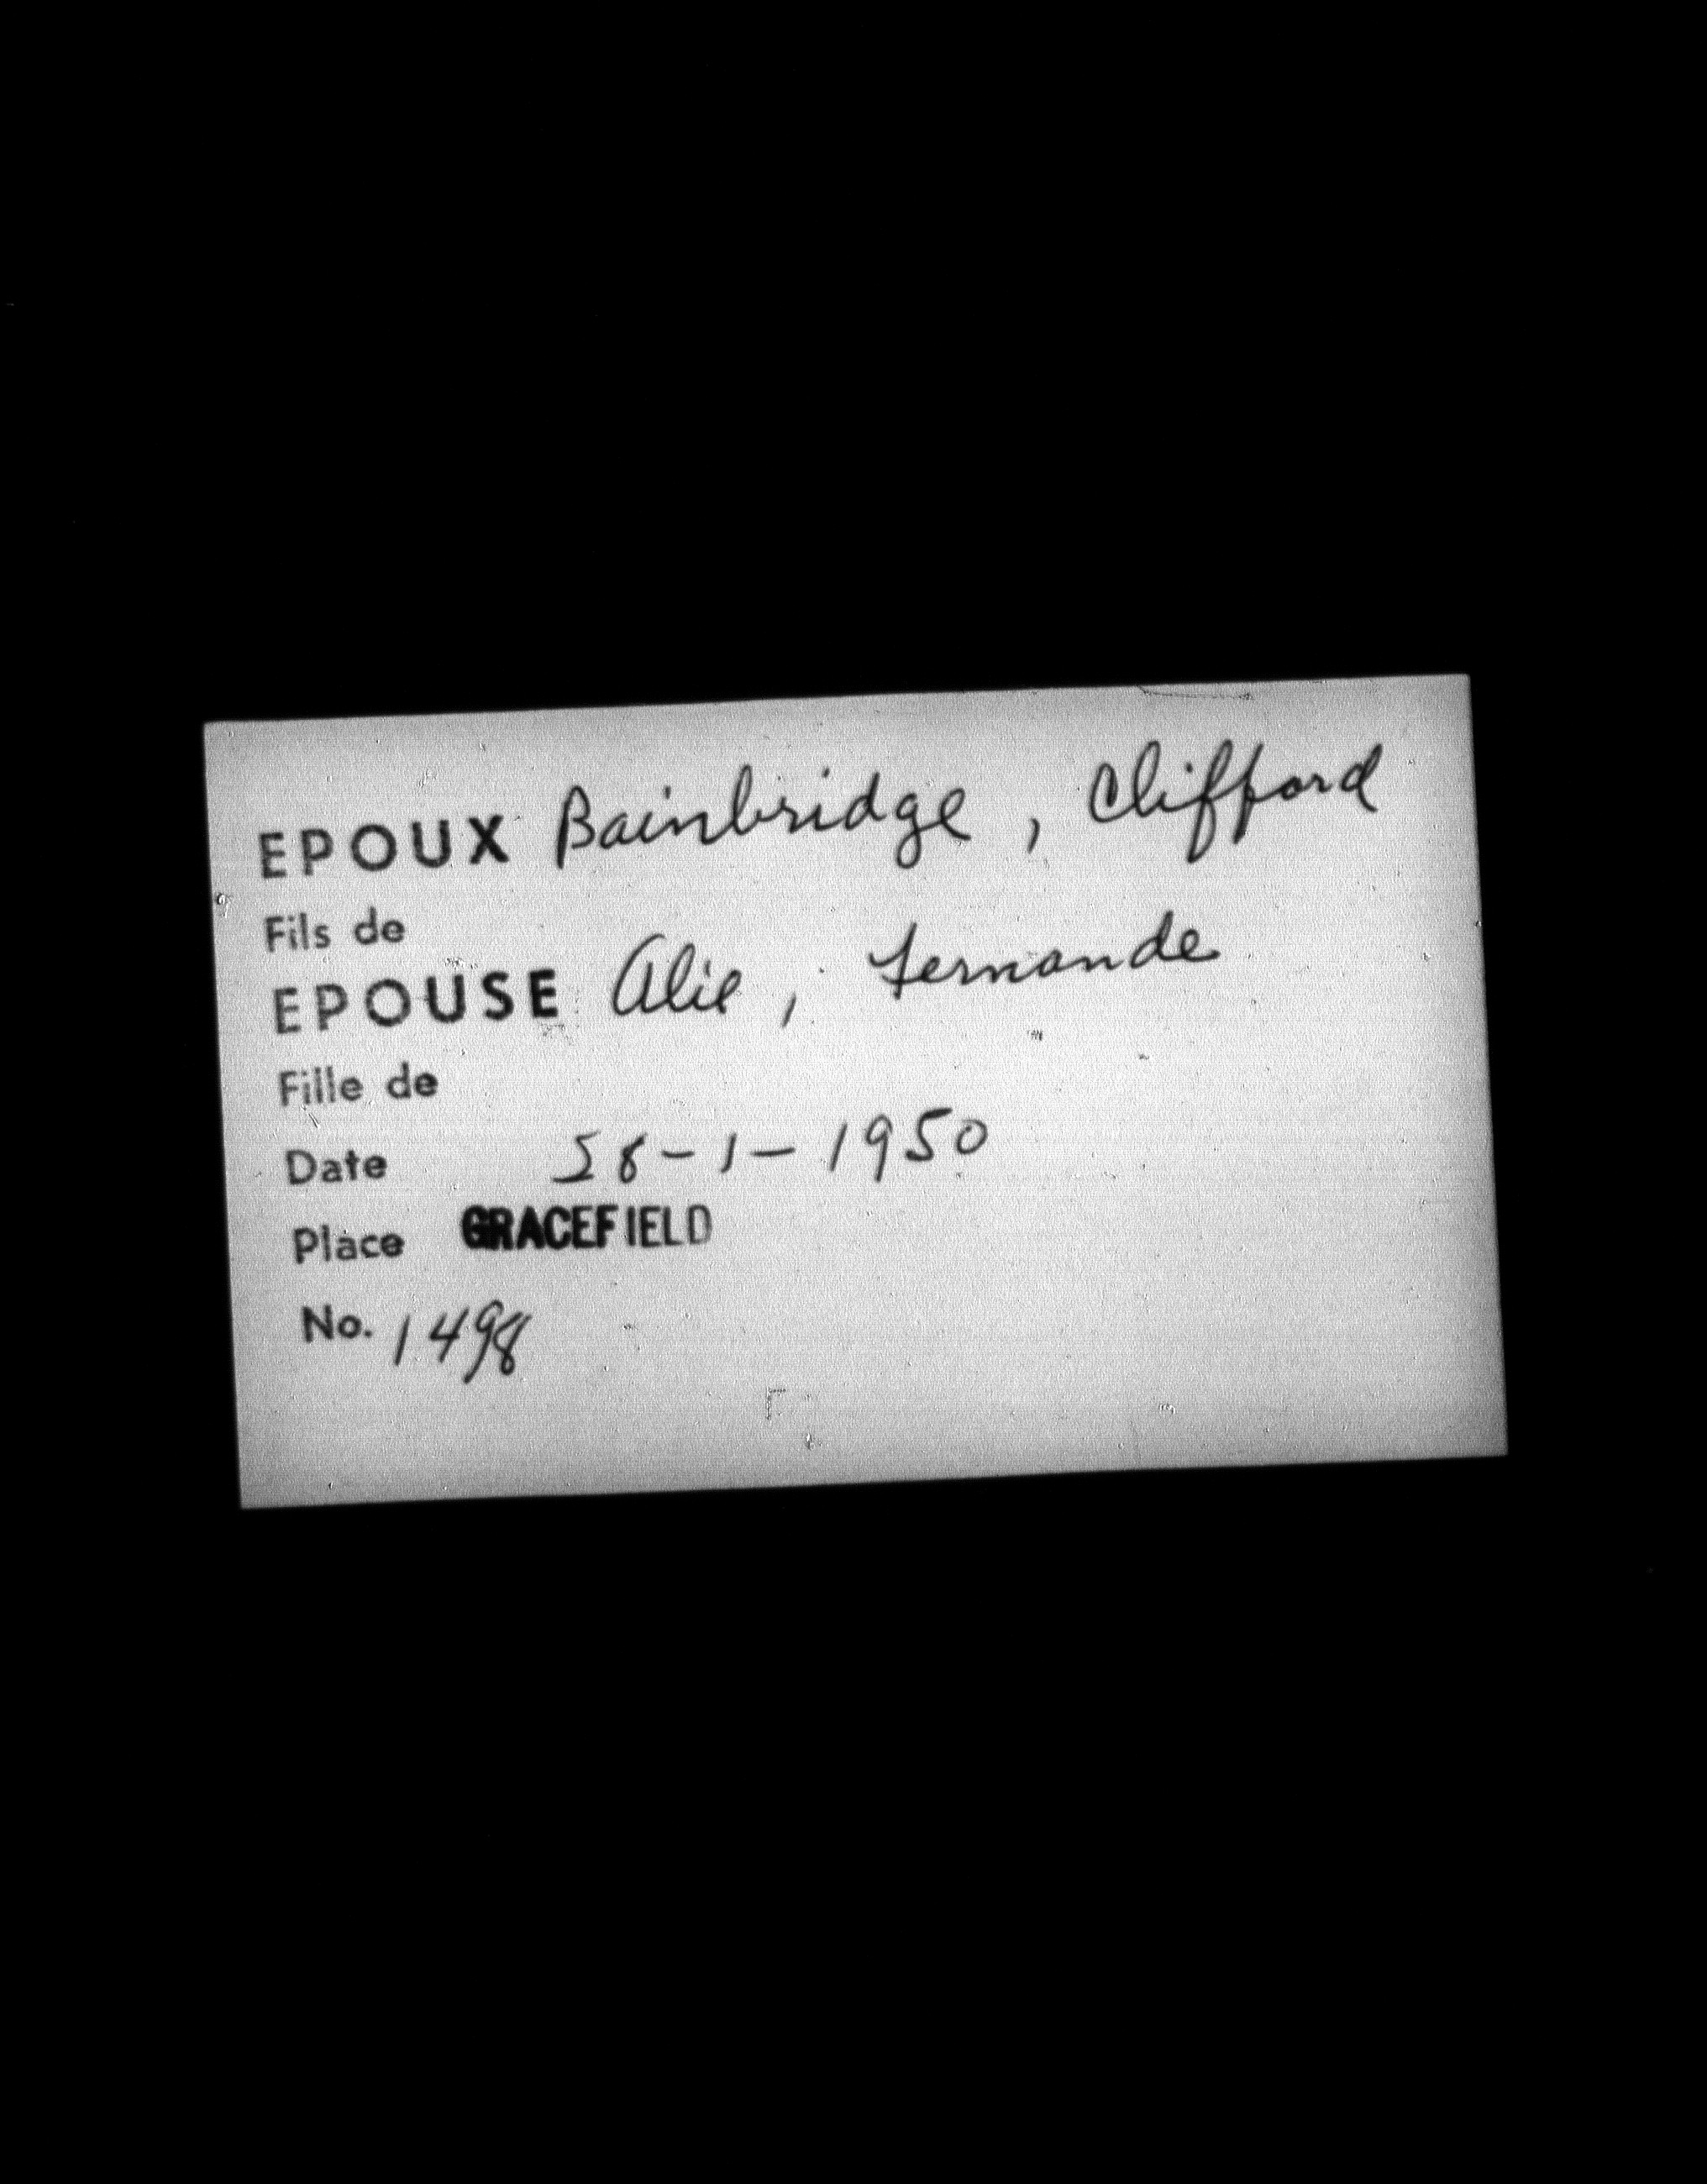 EPOUX Bainbridge, Clifford
Fils de
EPOUSE Alie, Fernande
Fille de
Date 28-1-1950
Place GRACEFIELD
No. 1498